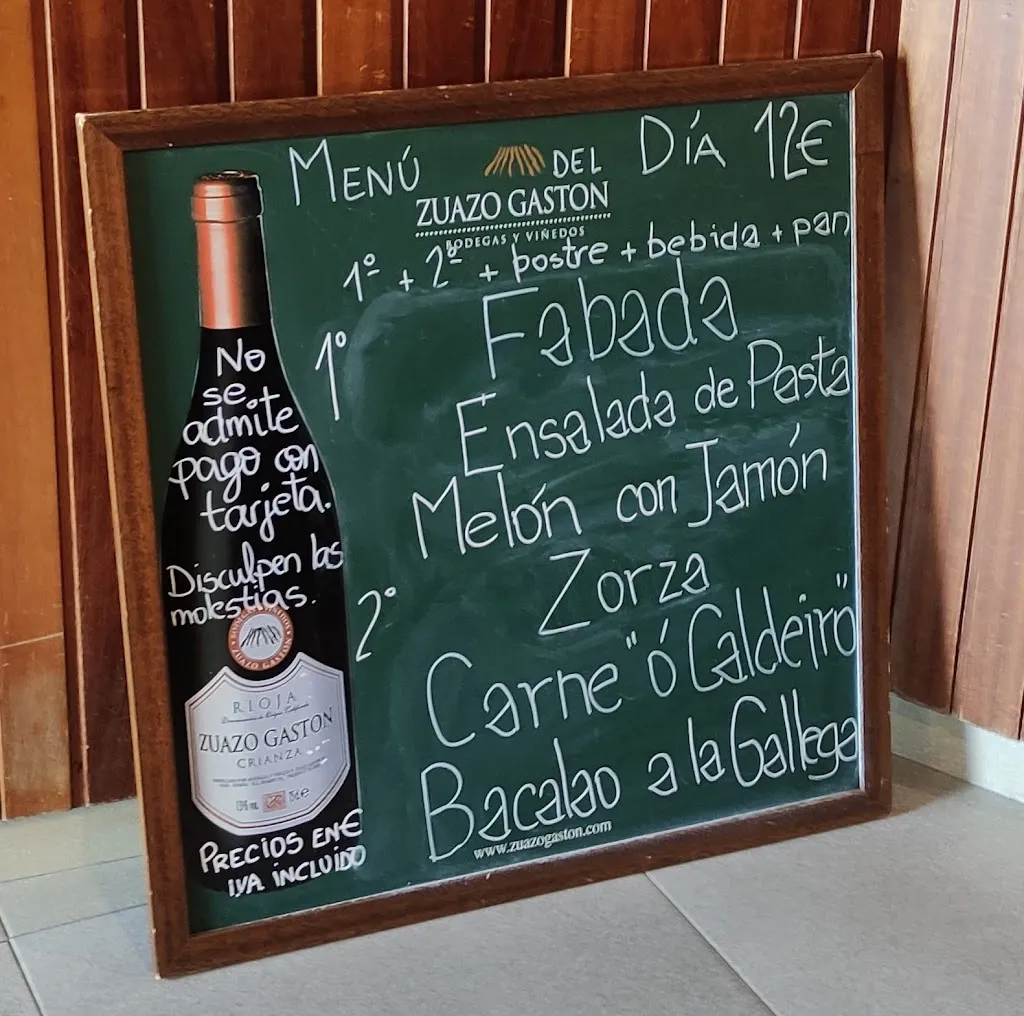 MENÚ DEL DÍA 12€
ZUAZO GASTON
BODEGAS Y VIÑEDOS
1º + 2º + postre + bebida + pan
1º Fabada
Ensalada de Pasta
Melón con Jamón
2º Zorza
Carne "ó Caldeiro"
Bacalao a la Gallega
www.zuazogaston.com
No
se
admite
pago con
tarjeta.
Disculpen las
molestias.
BODEGAS Y VIÑEDOS
ZUAZO GASTON
RIOJA
ZUAZO GASTON
CRIANZA
PRECIOS EN €
IVA INCLUIDO